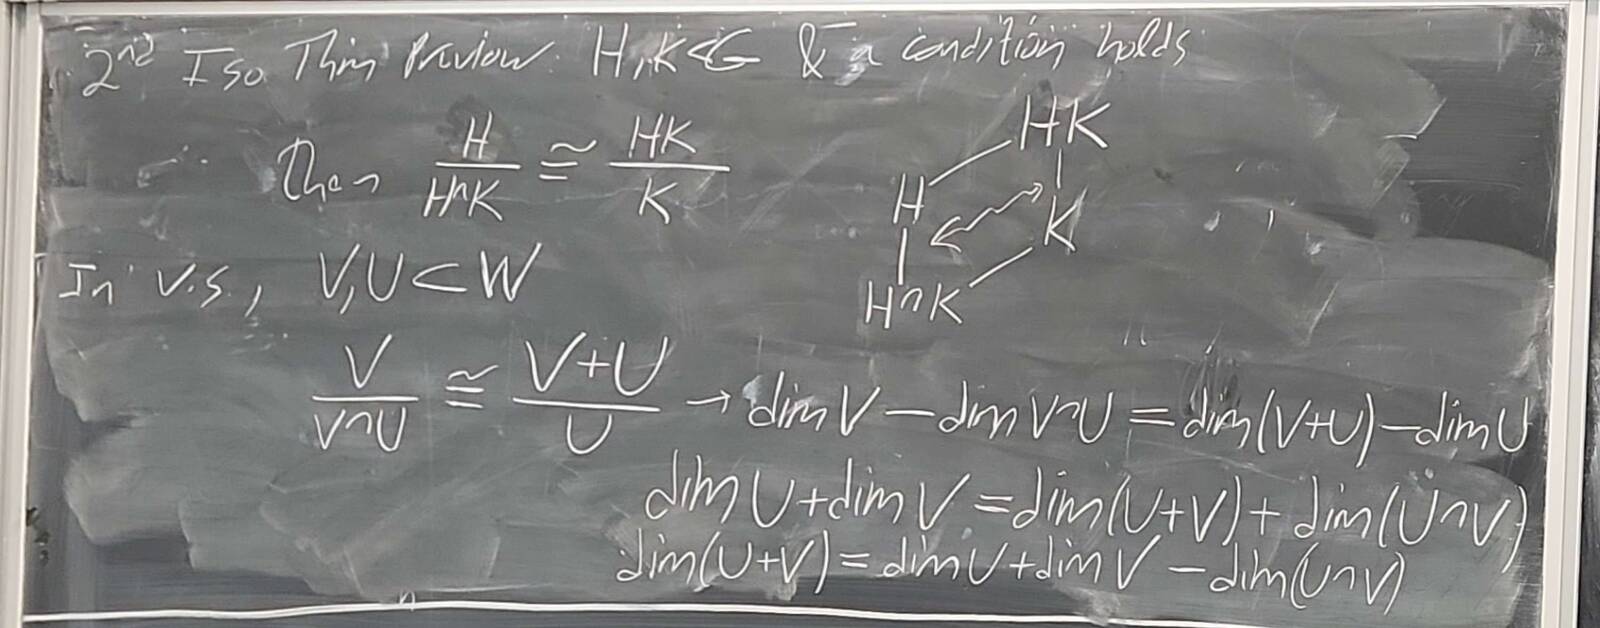 2nd Iso Thm Preview: H, K < G & a condition holds
Then H/H∩K ≅ HK/K
HK
H
K
H∩K
In v.s., V, U ⊂ W
V/V∩U ≅ V+U/U → dim V − dim V∩U = dim(V+U) − dim U
dim U + dim V = dim(U+V) + dim(U∩V)
dim(U+V) = dim U + dim V − dim(U∩V)